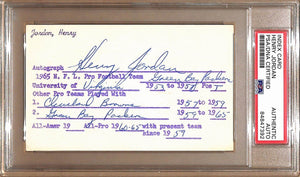 Jordan, Henry
Autograph Henry Jordan
1965 N.F.L. Pro Football Team Green Bay Packers
University of Virginia 1953 to 195 Pos T
Other Pro Teams Played With
1. Cleveland Browns 1957-1959
2. Green Bay Packers 1959-1965
All-Amer 19 All-Pro 1960-65 with present team
since 1959
INDEX CARD
HENRY JORDAN
PSA/DNA CERTIFIED
AUTHENTIC
AUTO
PSA
84847392